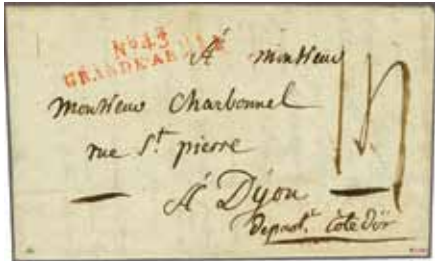 No. 43
GRANDE ARMÉE
À monsieur
monsieur Charbonnel
rue St. pierre
À Dijon
depart.t Côte d'or